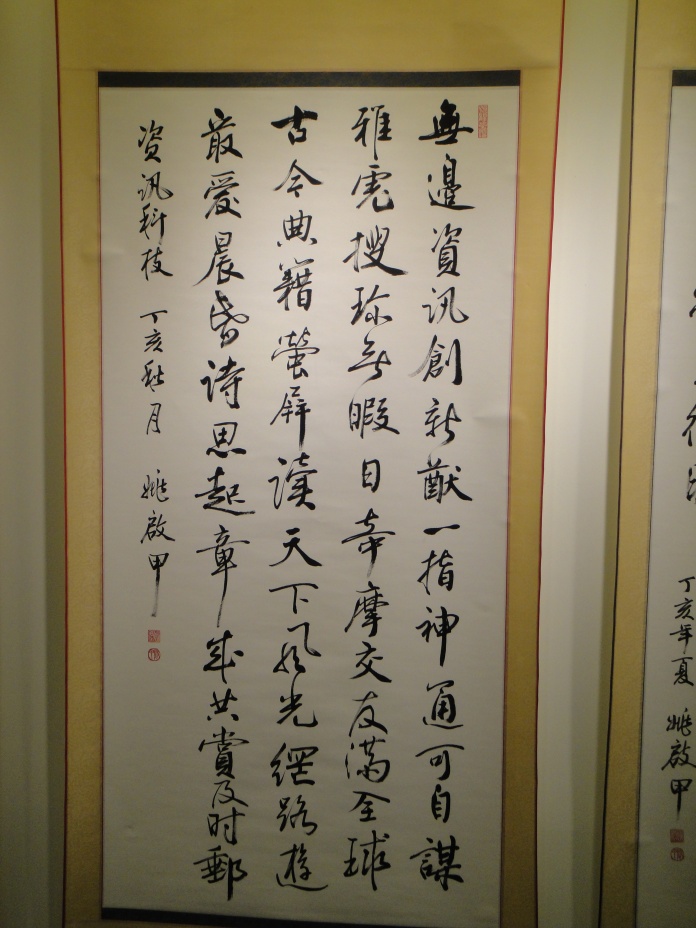 無邊資訊創新猷一指神通可自謀
雅虎搜珍无暇日奇摩交友滿全球
古今典籍螢屏讀天下風光網路遊
最愛晨昏詩思起章成共賞及时郵
資訊科技 丁亥秋月 姚啟甲
丁亥年夏 姚啟甲